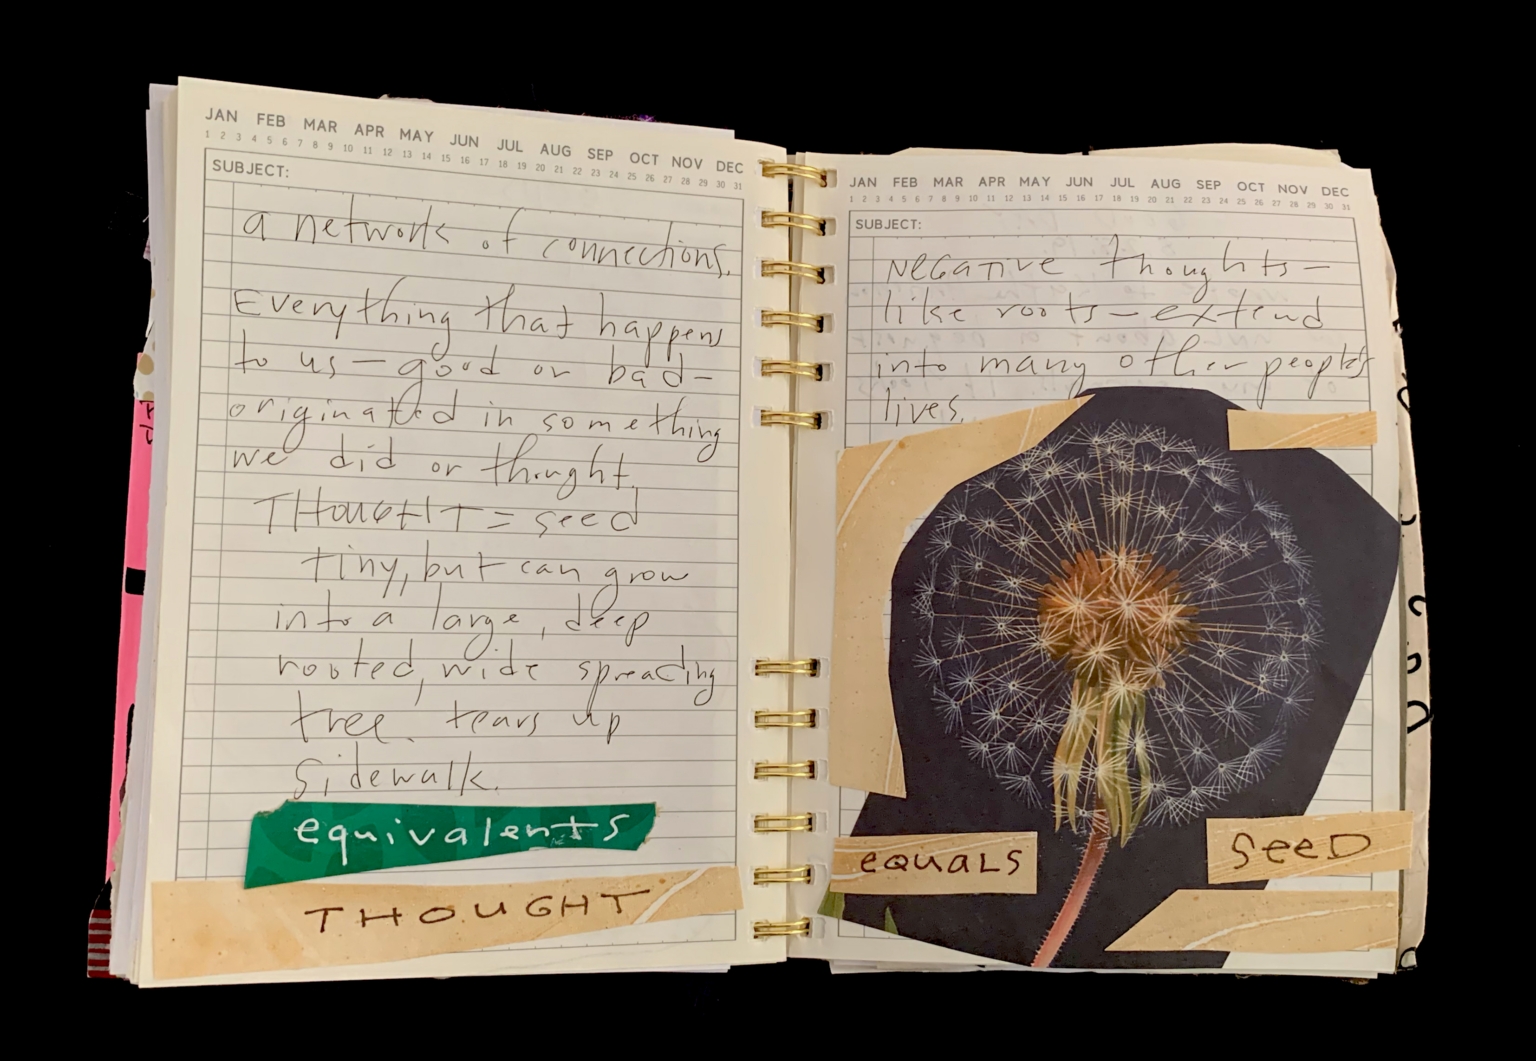 JAN FEB MAR APR MAY JUN JUL AUG SEP OCT NOV DEC
1 2 3 4 5 6 7 8 9 10 11 12 13 14 15 16 17 18 19 20 21 22 23 24 25 26 27 28 29 30 31
SUBJECT:
a network of connections.
Everything that happens
to us — good or bad —
originated in something
we did or thought.
THOUGHT = seed
tiny, but can grow
into a large, deep
rooted, wide spreading
tree. tears up
sidewalk.
equivalents
THOUGHT
JAN FEB MAR APR MAY JUN JUL AUG SEP OCT NOV DEC
1 2 3 4 5 6 7 8 9 10 11 12 13 14 15 16 17 18 19 20 21 22 23 24 25 26 27 28 29 30 31
SUBJECT:
NEGATIVE thoughts —
like roots — extend
into many other people's
lives.
equals
SeeD